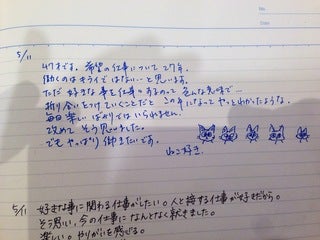 No.
Date
5/11
47才です。希望の仕事について27年。
働くのはキライではない…と思います。
ただ好きな事を仕事にするのって色んな意味で…
折り合いをつけていくことだと この年になってやっとわかったような。
毎日楽しいばかりではいられません。
改めて そう思いました。
でも やっぱり 働きたいです。
ねこ好き
5/11 好きな事に関わる仕事がしたい。人と接する仕事が好きだから。
そう思い、今の仕事に なんとなく就きました。
楽しい。やりがいを感じる。